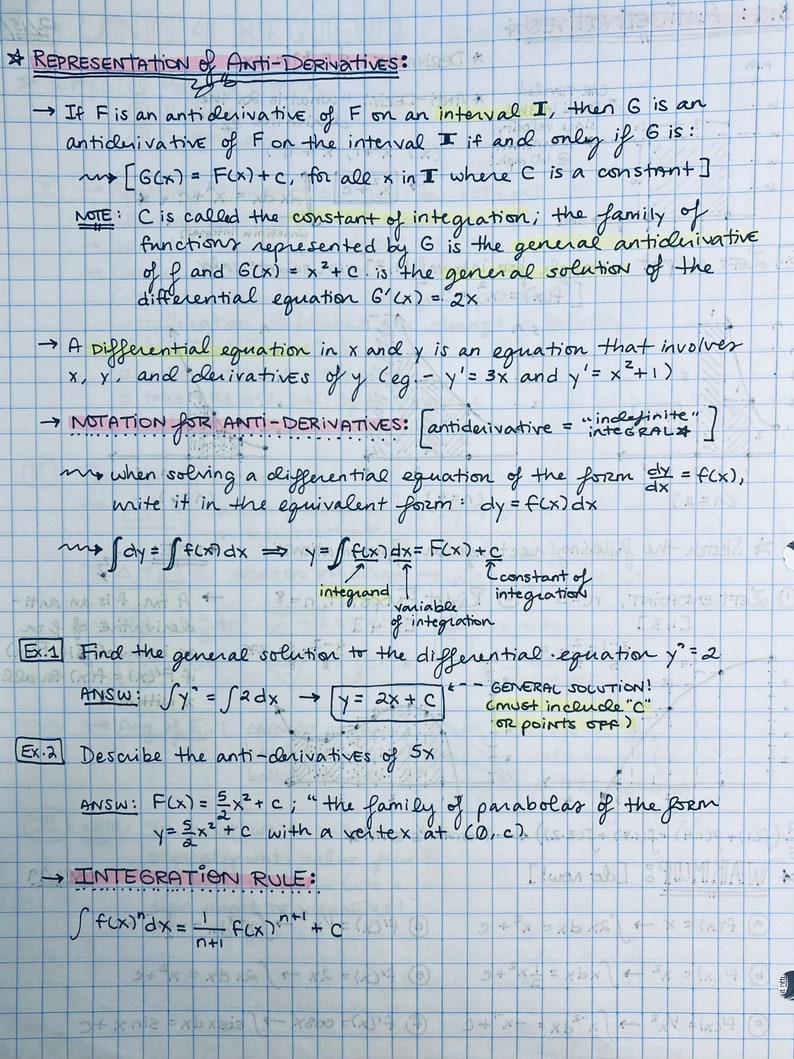 ☆ REPRESENTATION of ANTI-DERIVATIVES:
→ If F is an antiderivative of F on an interval I, then G is an
antiderivative of F on the interval I if and only if G is:
[G(x) = F(x) + C, for all x in I where C is a constant]
NOTE: C is called the constant of integration; the family of
functions represented by G is the general antiderivative
of f and G(x) = x² + C is the general solution of the
differential equation G'(x) = 2x
→ A differential equation in x and y is an equation that involves
x, y, and derivatives of y (eg. - y' = 3x and y' = x² + 1)
→ NOTATION for ANTI-DERIVATIVES: [antiderivative = "indefinite" inteGRAL☆]
when solving a differential equation of the form dy/dx = f(x),
write it in the equivalent form: dy = f(x) dx
∫dy = ∫f(x) dx ⇒ y = ∫f(x) dx = F(x) + C
integrand
variable of integration
constant of integration
Ex.1 Find the general solution to the differential equation y' = 2
ANSW: ∫y' = ∫2dx → y = 2x + C ← - - GENERAL SOLUTION!
(must include "C"
OR points off)
Ex.2 Describe the anti-derivatives of 5x
ANSW: F(x) = 5/2 x² + C; "the family of parabolas of the form
y = 5/2 x² + C with a vertex at (0, c).
→ INTEGRATION RULE:
∫ f(x)ⁿ dx = 1/(n+1) f(x)ⁿ⁺¹ + C